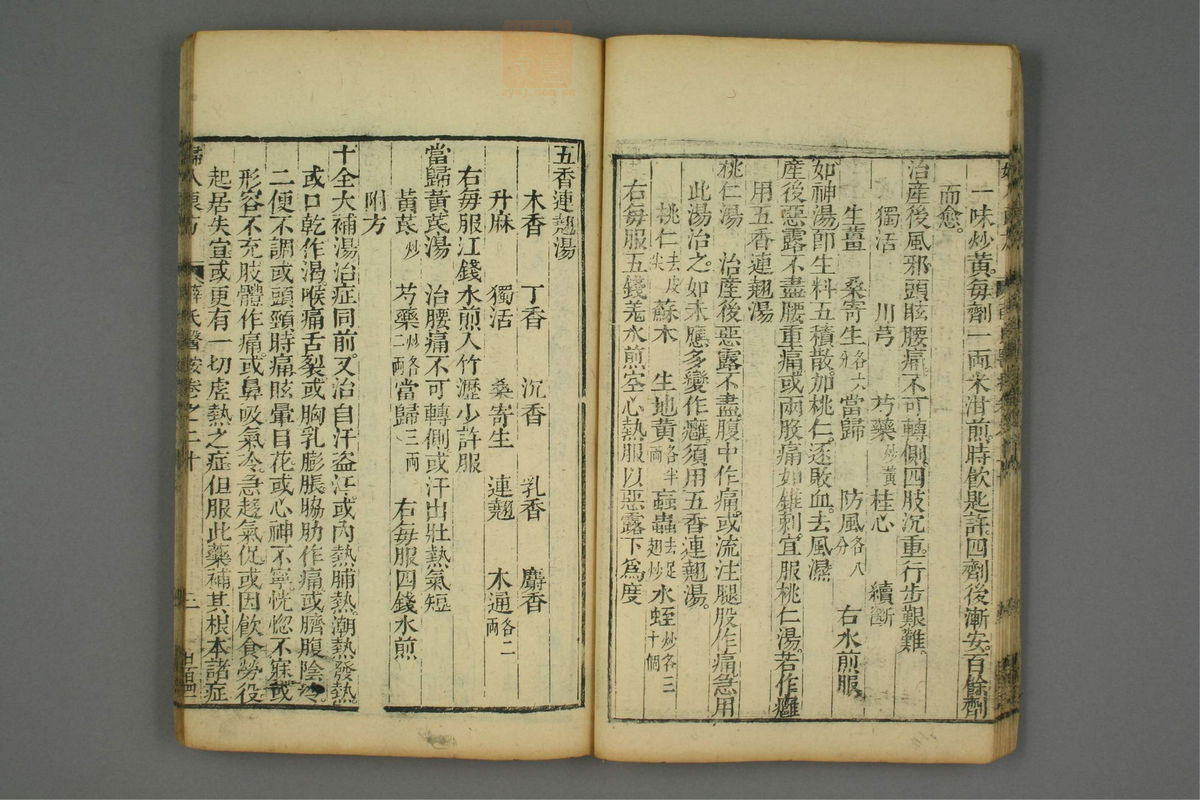 一味炒黃每劑一兩米泔煎時飲匙許四劑後漸安百餘劑
而愈。
治產後風邪頭眩腰痛不可轉側四肢沉重行步艱難。
獨活　川芎　芍藥炒黃　桂心　續斷
生薑　桑寄生各六分　當歸　防風各八分　右水煎服
如神湯卽生料五積散加桃仁逐敗血去風濕
產後惡露不盡腰重痛或兩股痛如錐刺宜服桃仁湯若作癰
用五香連翹湯
桃仁湯　治產後惡露不盡腹中作痛或流注腿股作痛急用
此湯治之如未應多變作癰須用五香連翹湯。
桃仁去皮尖　蘇木　生地黃各半兩　蝱蟲去足翅炒　水蛭炒各三十個
右每服五錢羌水煎空心熱服以惡露下爲度
五香連翹湯
木香　丁香　沉香　乳香　麝香
升麻　獨活　桑寄生　連翹　木通各二兩
右每服江錢水煎入竹瀝少許服
當歸黃芪湯　治腰痛不可轉側或汗出壯熱氣短
黃芪炒　芍藥炒各二兩　當歸三兩　右每服四錢水煎
附方
十全大補湯治症同前又治自汗盜汗或內熱晡熱潮熱發熱
或口乾作渴喉痛舌裂或胸乳膨脹脇肋作痛或臍腹陰冷
二便不調或頭頸時痛眩暈目花或心神不寧恍惚不寐或
形容不充肢體作痛或鼻吸氣冷急趨氣促或因飲食勞役
起居失宜或更有一切虛熱之症但服此藥補其根本諸症
婦人良方　薛氏醫按卷之二十　三